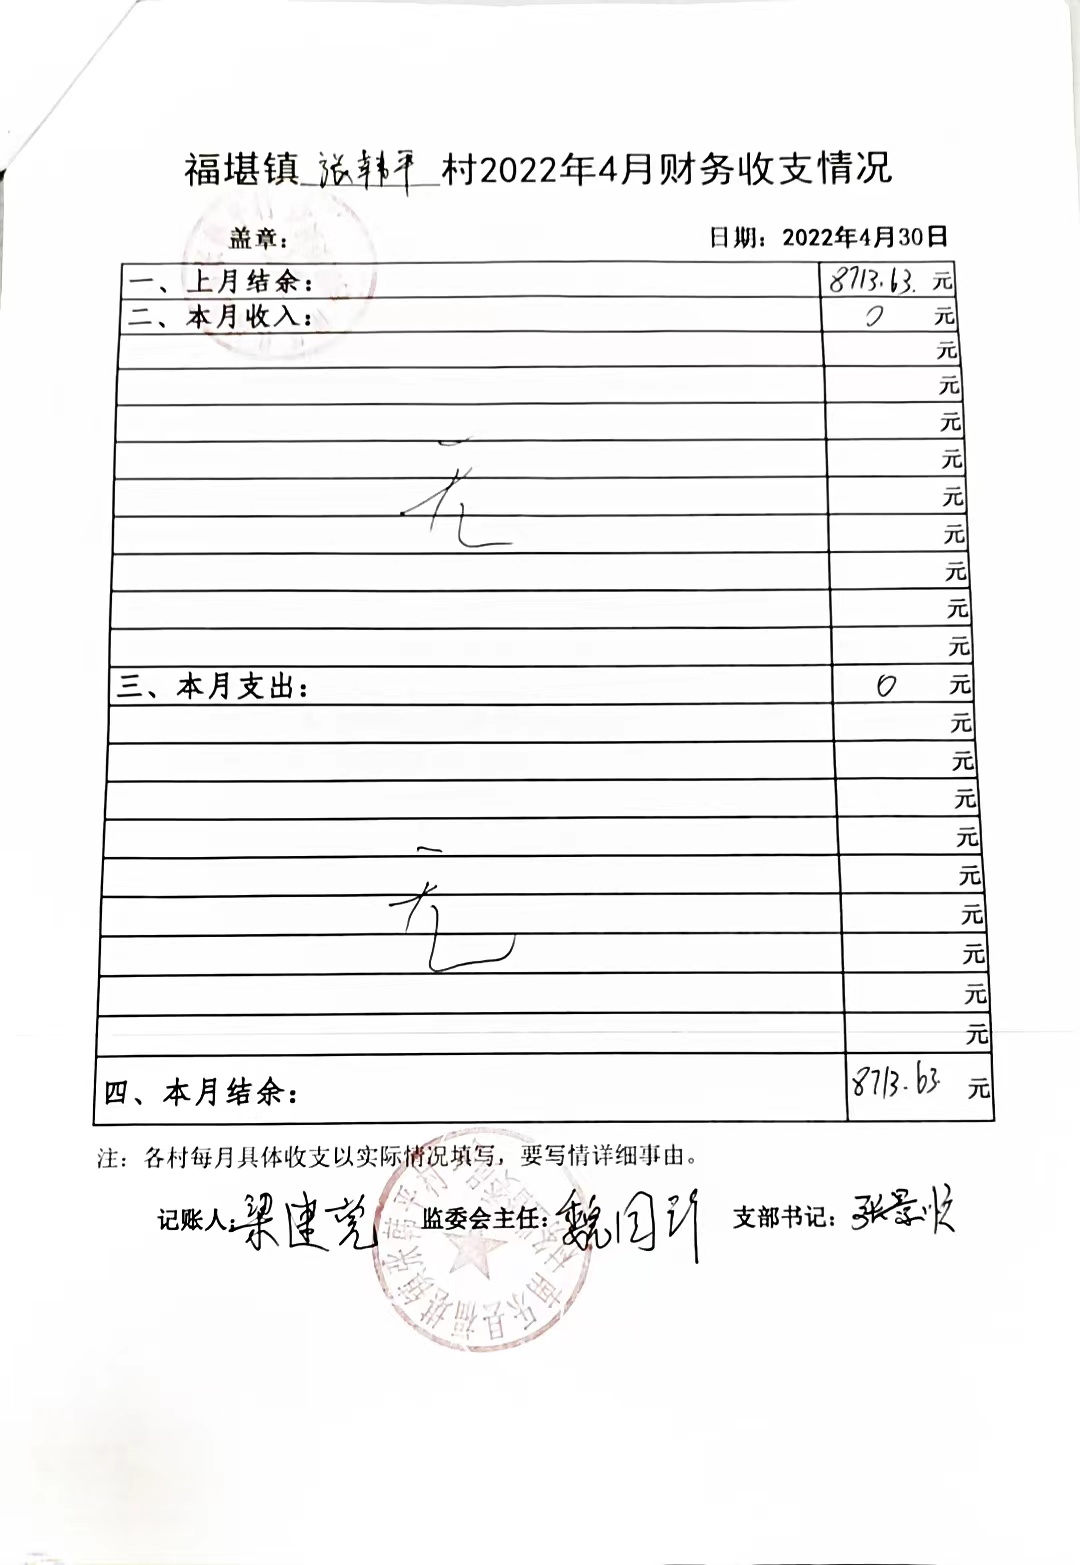 福堪镇 张韩平 村2022年4月财务收支情况
盖章: 日期: 2022年4月30日
一、上月结余: 8713.63. 元
二、本月收入: 0 元
元
元
元
元
元
无
元
元
元
元
三、本月支出: 0 元
元
元
元
元
元
无
元
元
元
元
四、本月结余: 8713.63 元
注: 各村每月具体收支以实际情况填写, 要写情详细事由。
记账人: 梁建 监委会主任: 魏国 支部书记: 张景顺
南乐县福堪镇张韩平村